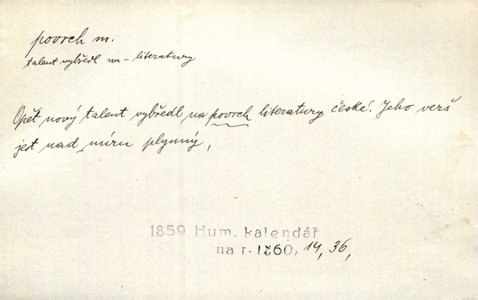 povrch m.
talent vybředl na – literatury
Opět nový talent vybředl na povrch literatury české. Jeho verš
jest nad míru plynný,
1859 Hum. kalendář
na r. 1860, 14, 36,